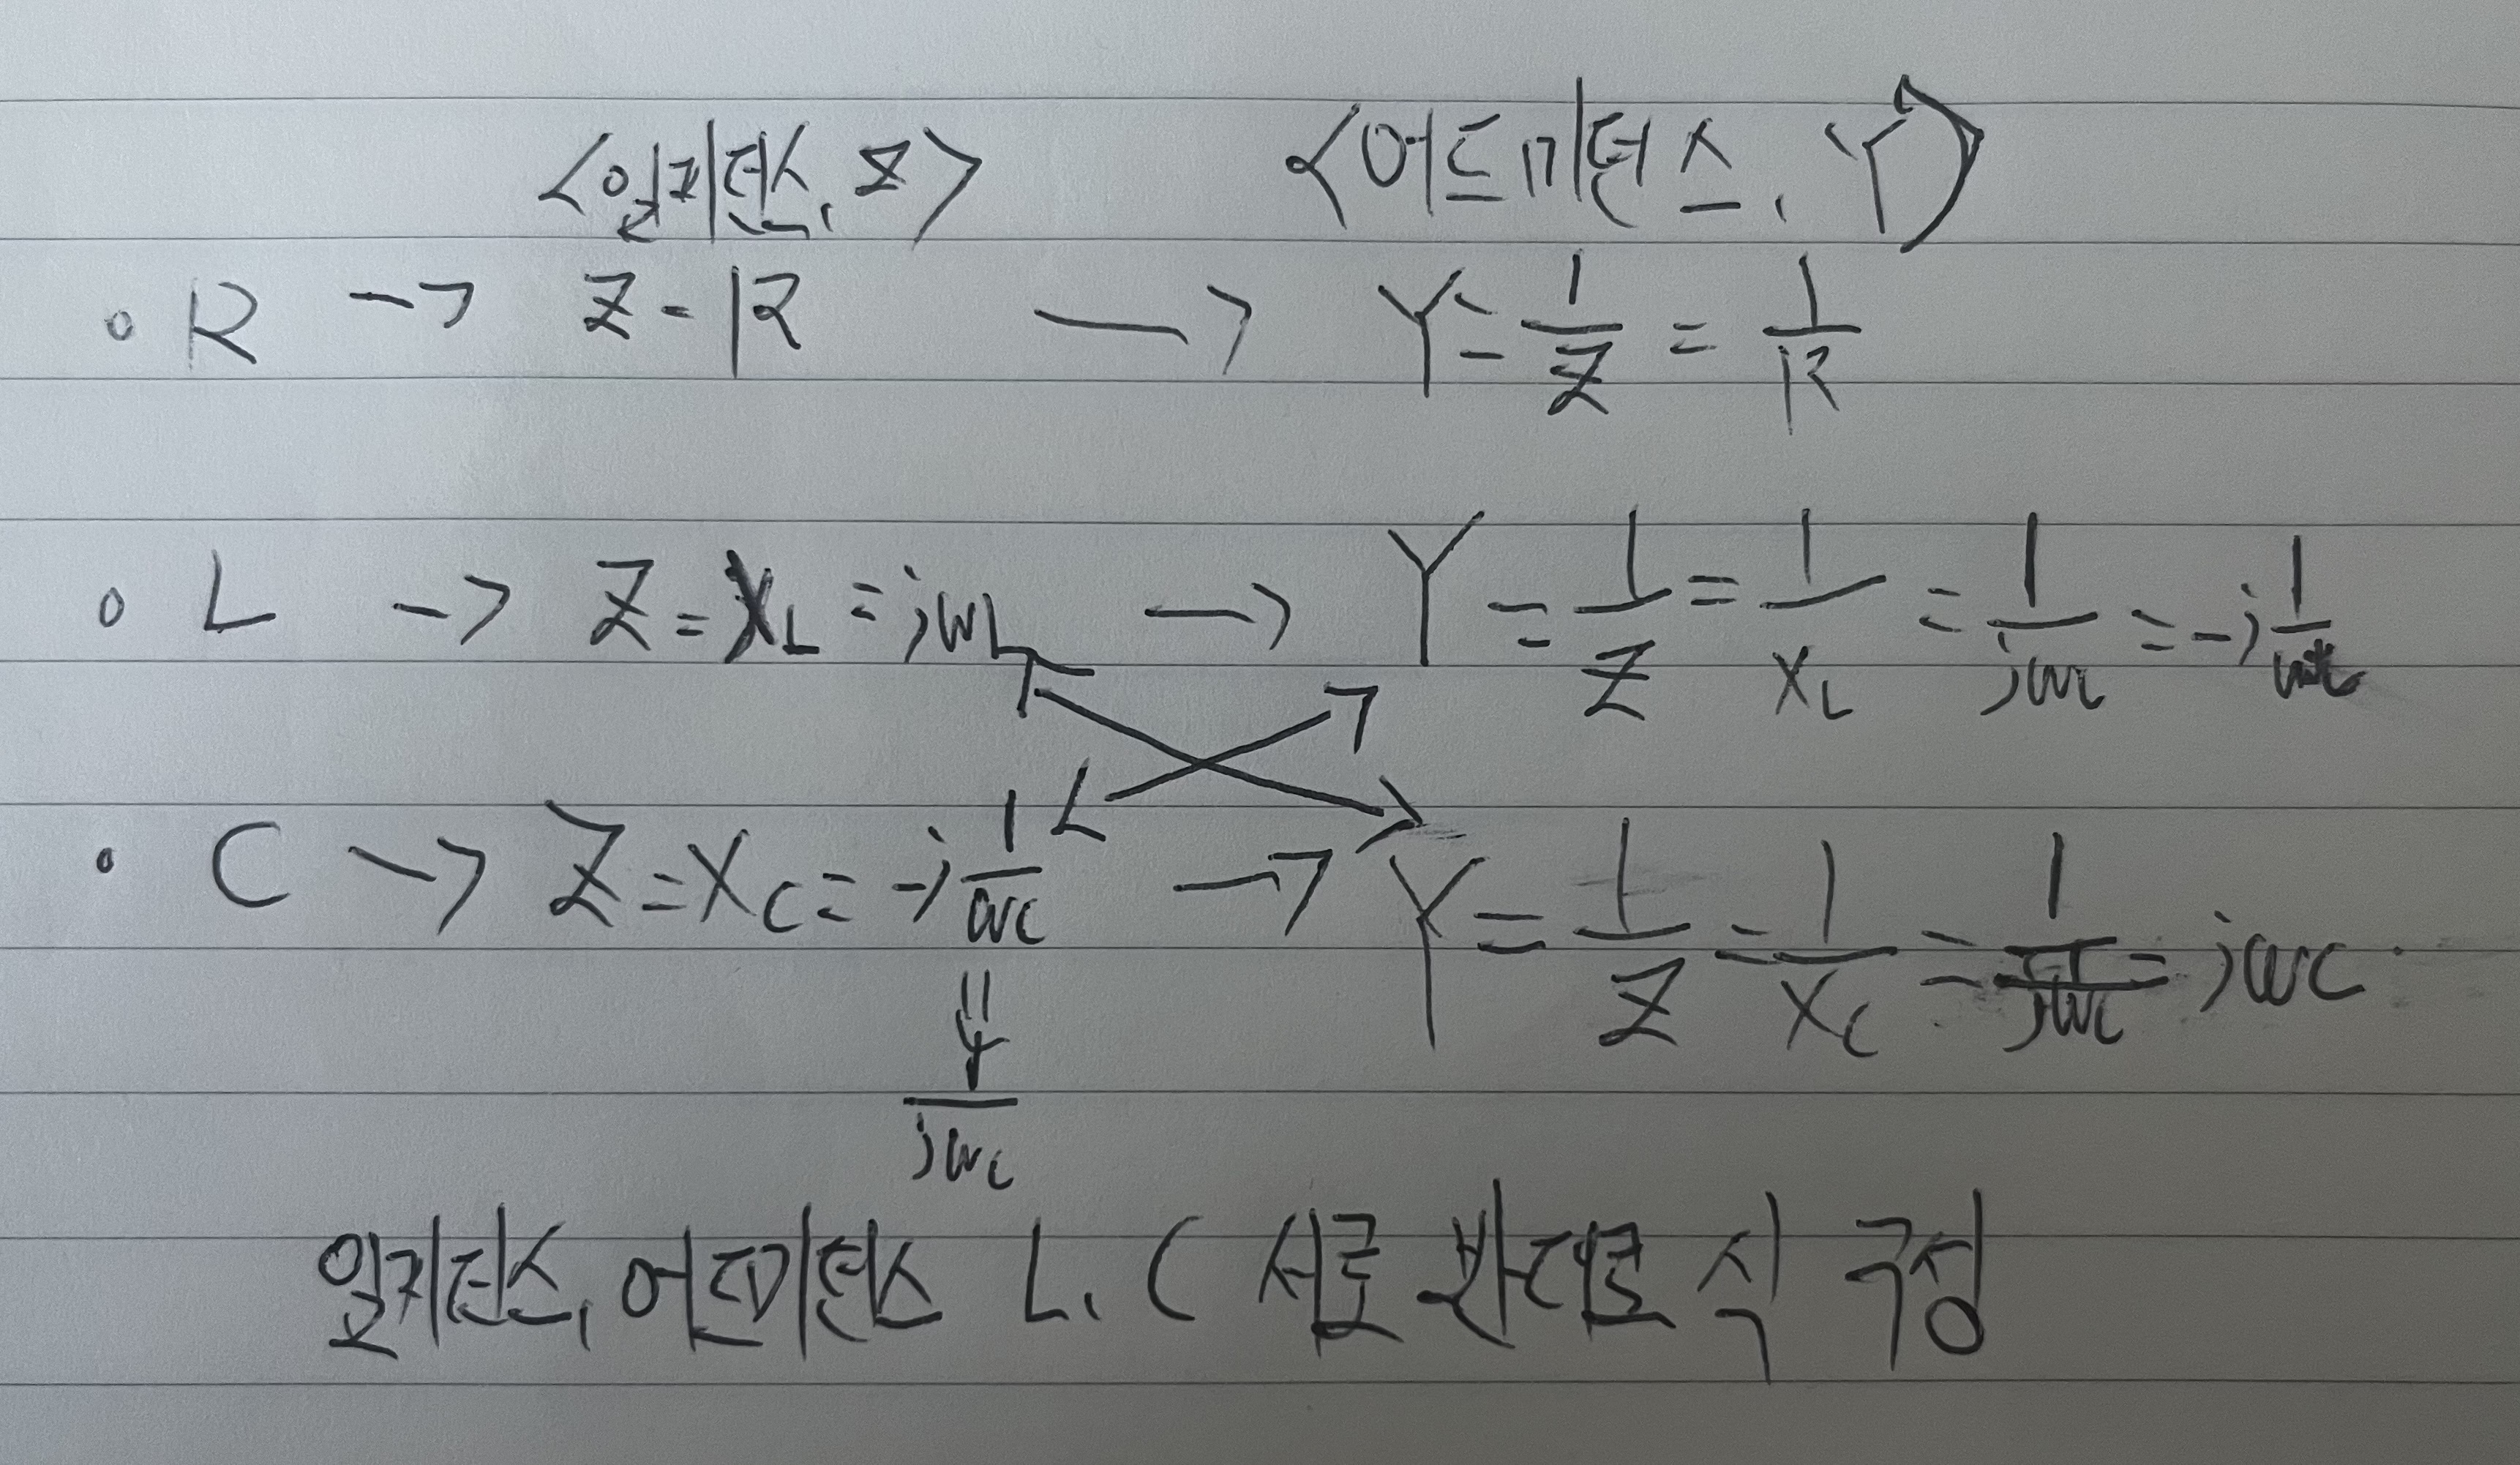 <임피던스, Z> <어드미턴스, Y>
◦ R → Z = R → Y = 1/Z = 1/R
◦ L → Z = XL = jωL → Y = 1/Z = 1/XL = 1/jωL = -j 1/ωL
◦ C → Z = XC = -j 1/ωC → Y = 1/Z = 1/XC = 1/(1/jωC) = jωC
= 1/jωC
임피던스, 어드미턴스 L, C 서로 반대로 식 구성